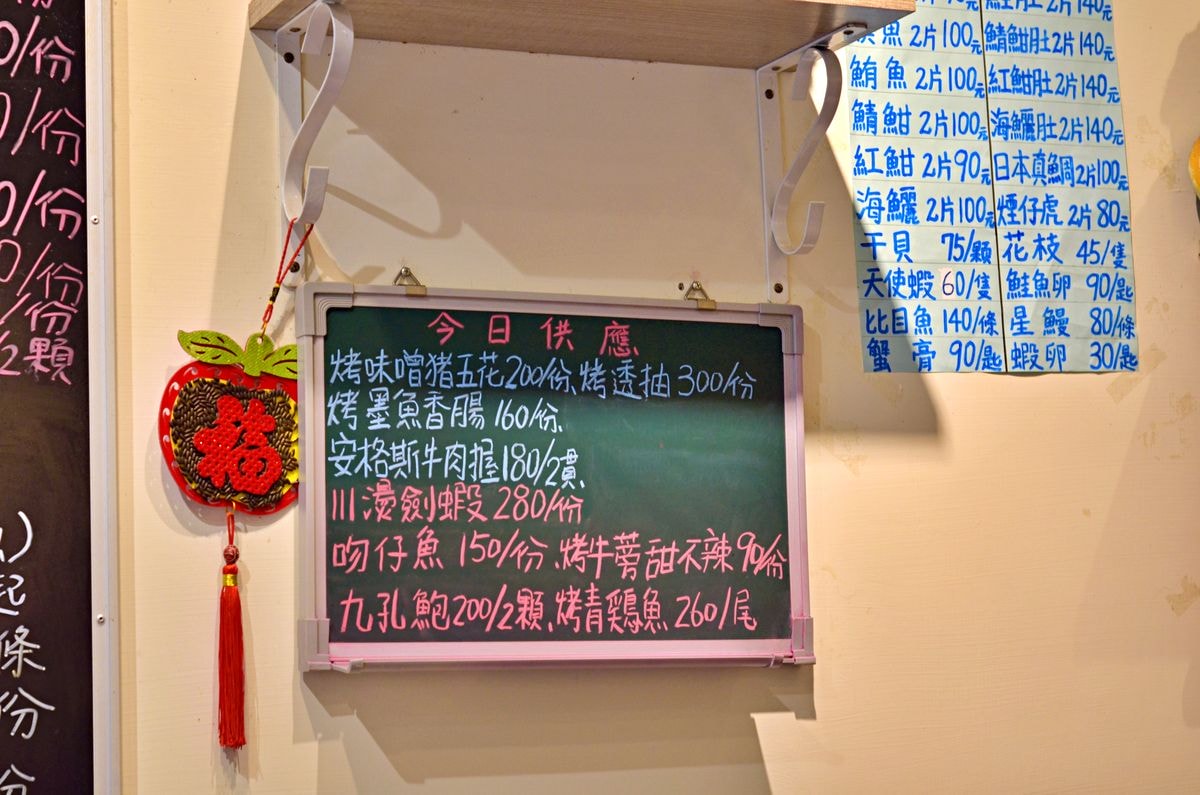 /份
/份
0/份
0/份
/份
2顆
起
條
份
份
福
今日供應
烤味噌豬五花200/份、烤透抽300/份
烤墨魚香腸160/份、
安格斯牛肉握180/2貫、
川燙劍蝦280/份
吻仔魚150/份、烤牛蒡甜不辣90/份
九孔鮑200/2顆、烤青鷄魚260/尾
魚2片100元
鮪魚2片100元
鯖魽2片100元
紅魽2片90元
海鱺2片100元
干貝75/顆
天使蝦60/隻
比目魚140/條
蟹膏90/匙
2片140元
鯖魽肚2片140元
紅魽肚2片140元
海鱺肚2片140元
日本真鯛2片100元
煙仔虎2片80元
花枝45/隻
鮭魚卵90/匙
星鰻80/條
蝦卵30/匙